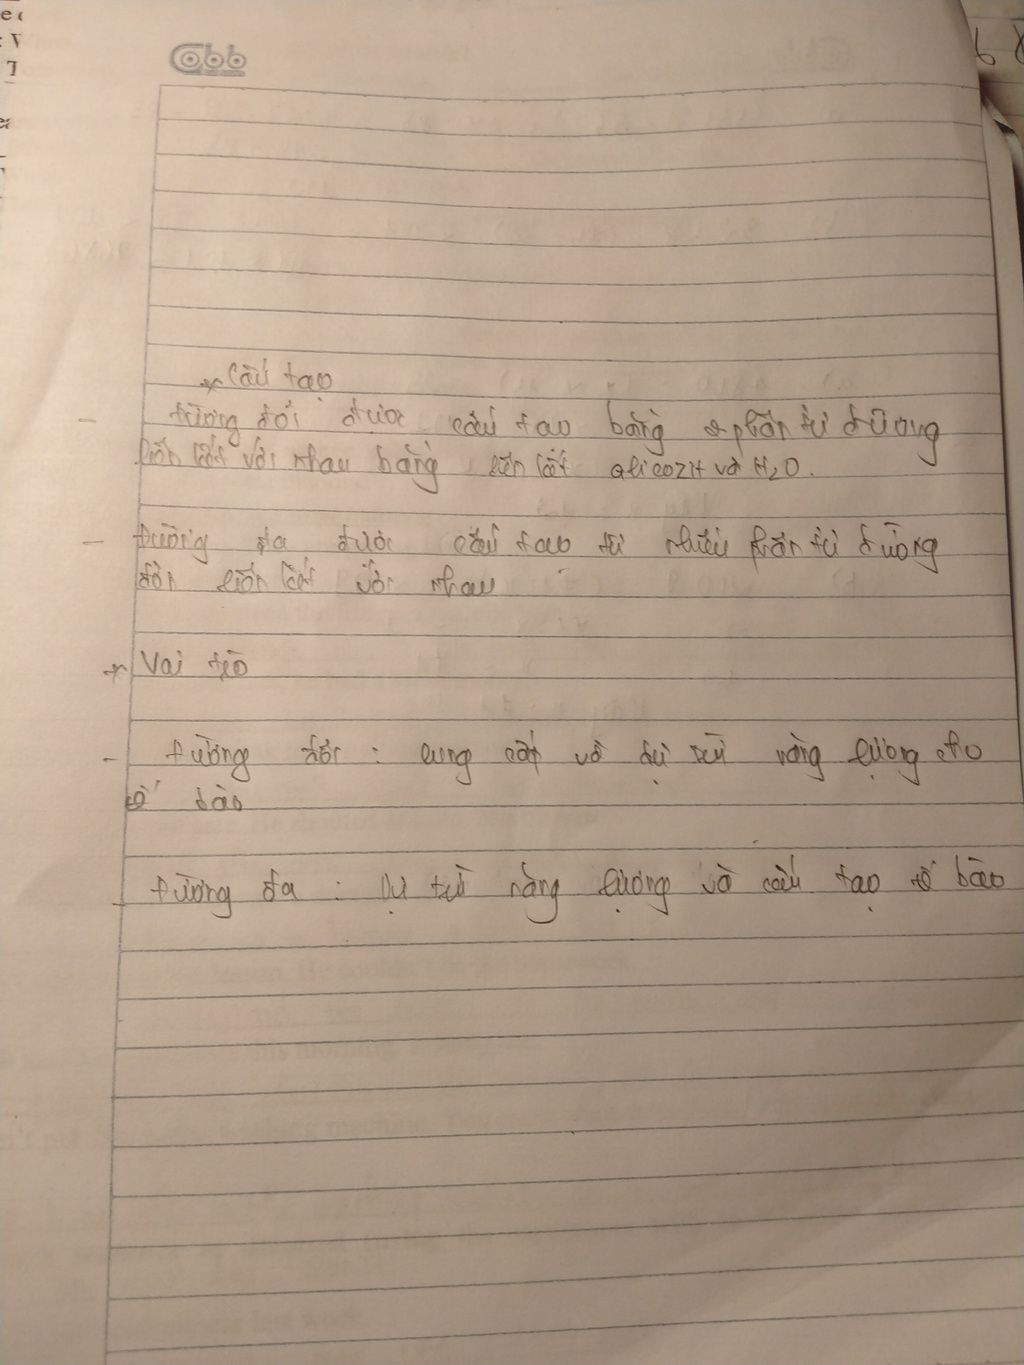 Cobb
* Cấu tạo
- đường đôi được cấu tạo bằng 2 phân tử đường
liên kết với nhau bằng liên kết glicozit và H2O.
- đường đa được cấu tạo từ nhiều phân tử đường
đơn liên kết với nhau
* Vai trò
- đường đôi : cung cấp và dự trữ năng lượng cho
tế bào
- đường đa : Dự trữ năng lượng và cấu tạo tế bào